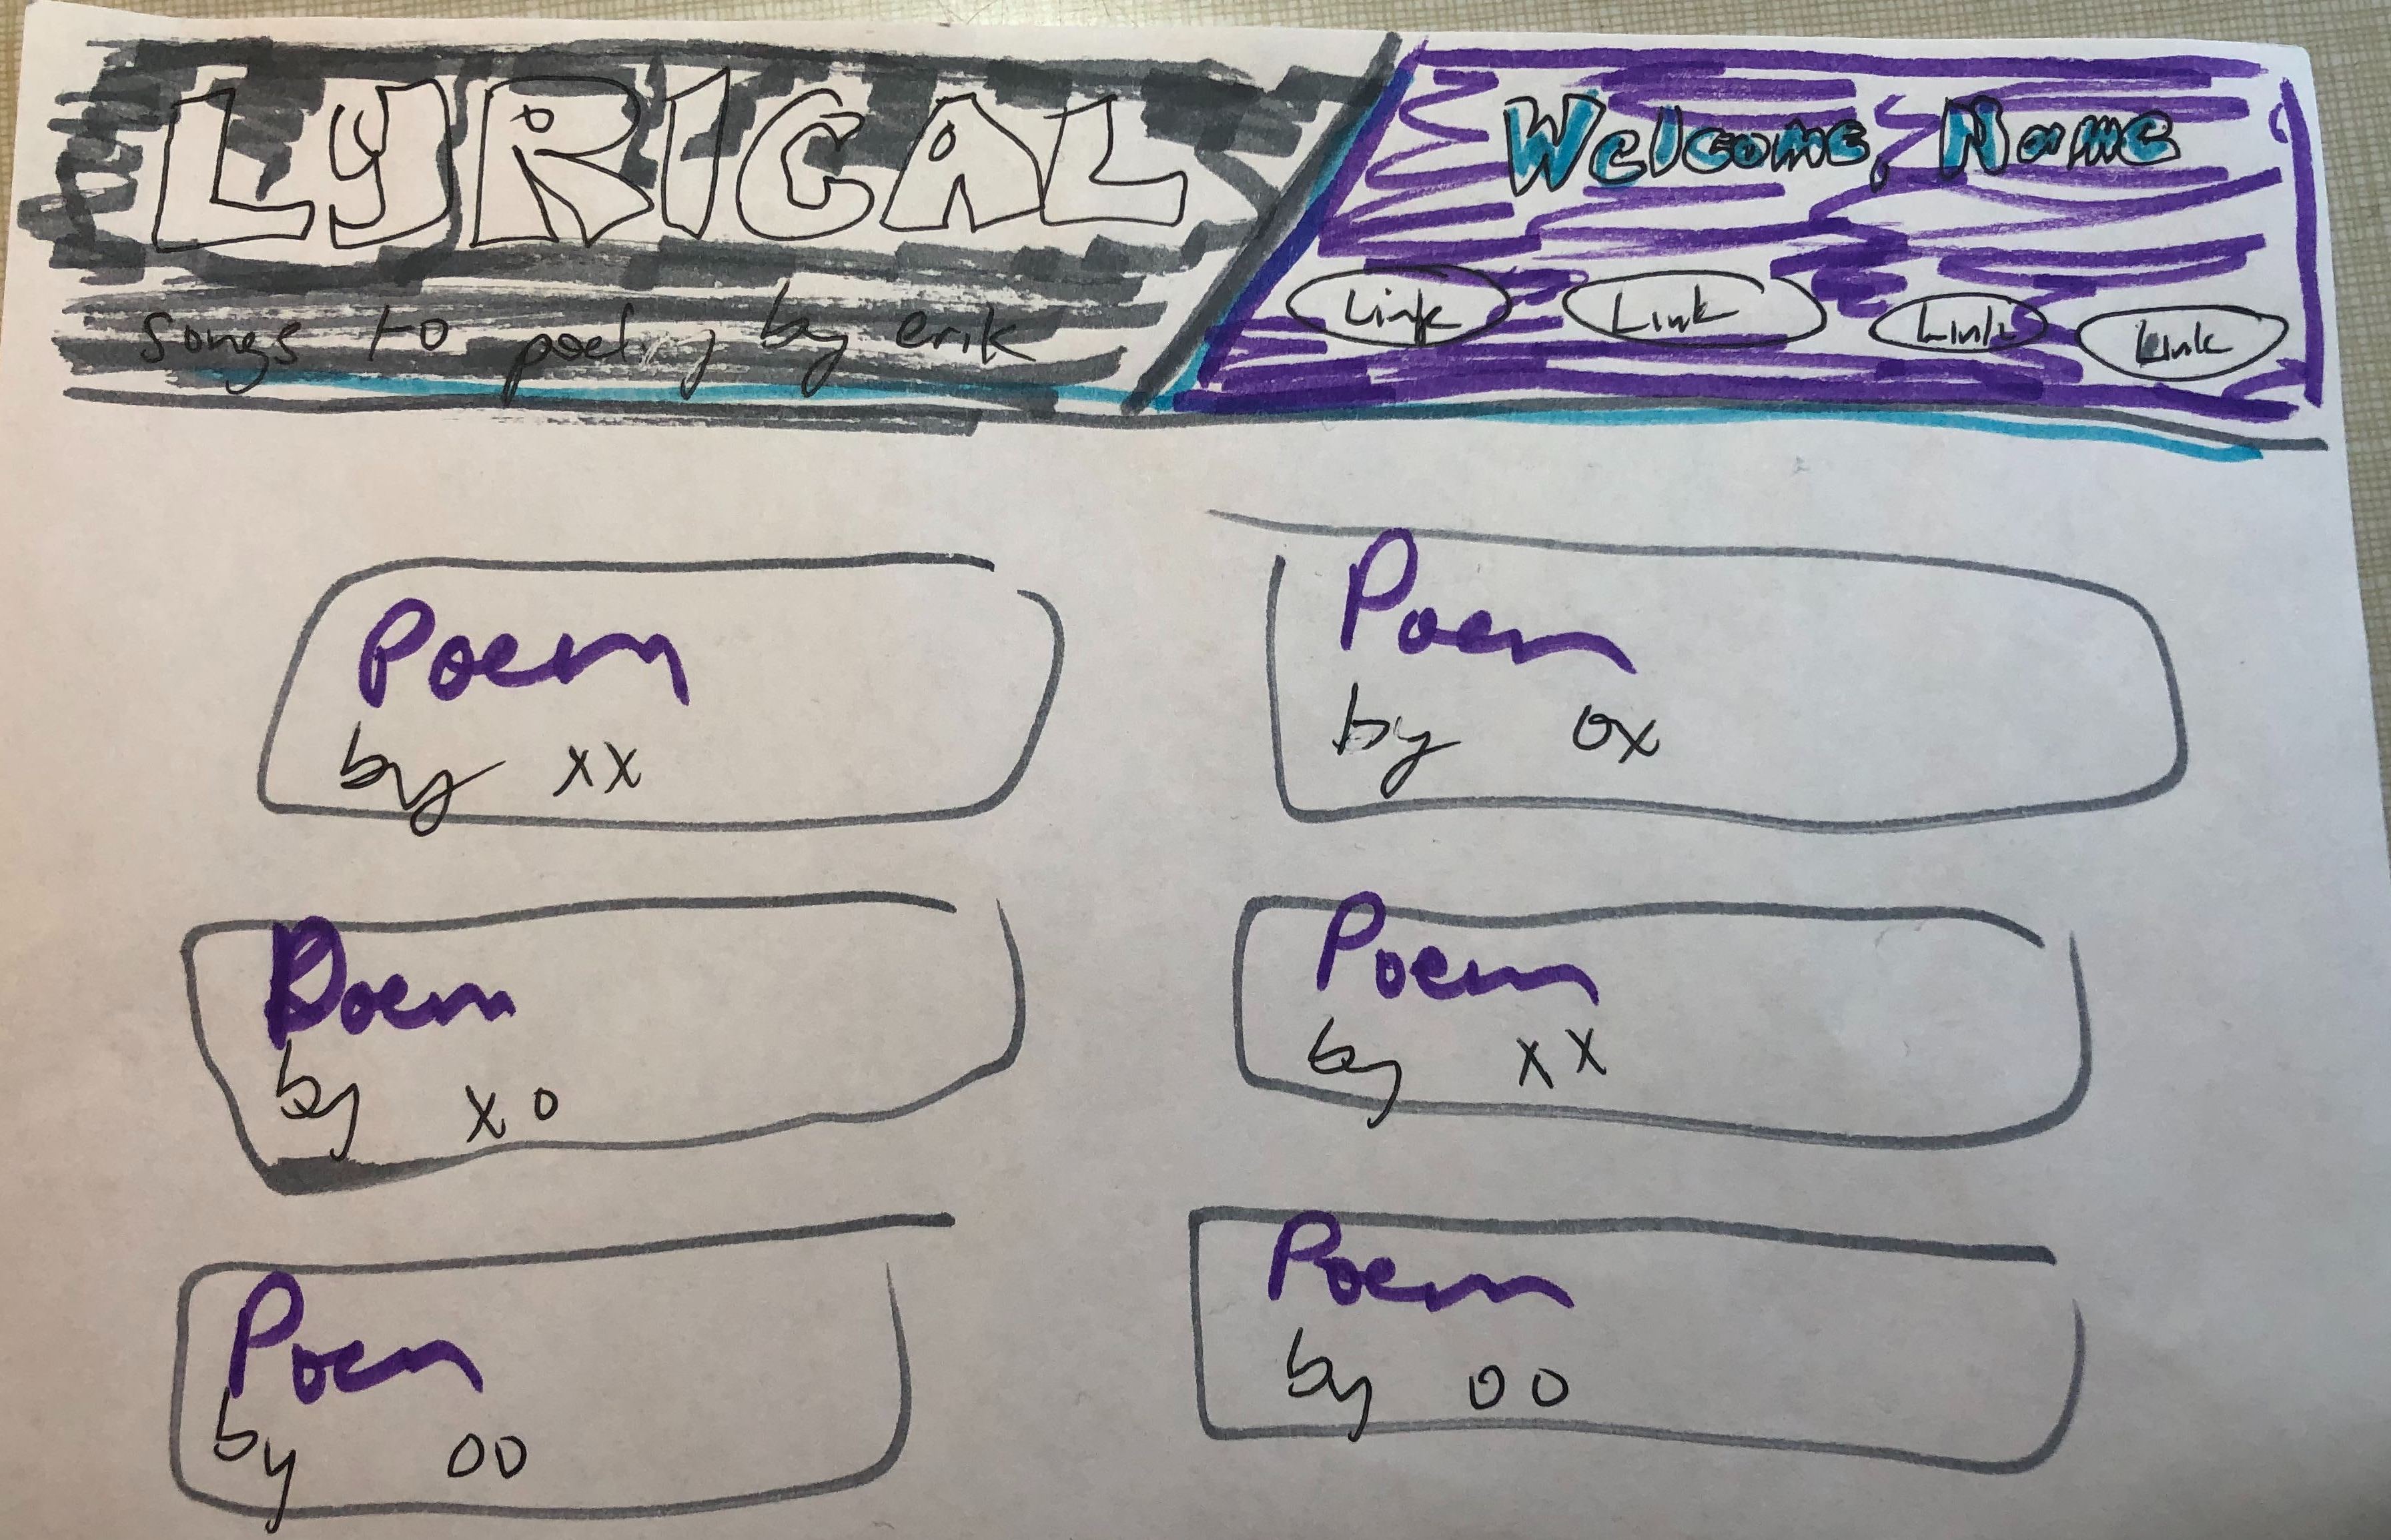 LYRICAL
songs to poetry by erik
Welcome, Name
Link Link Link Link
Poem
by xx
Poem
by ox
Poem
by xo
Poem
by xx
Poem
by oo
Poem
by oo